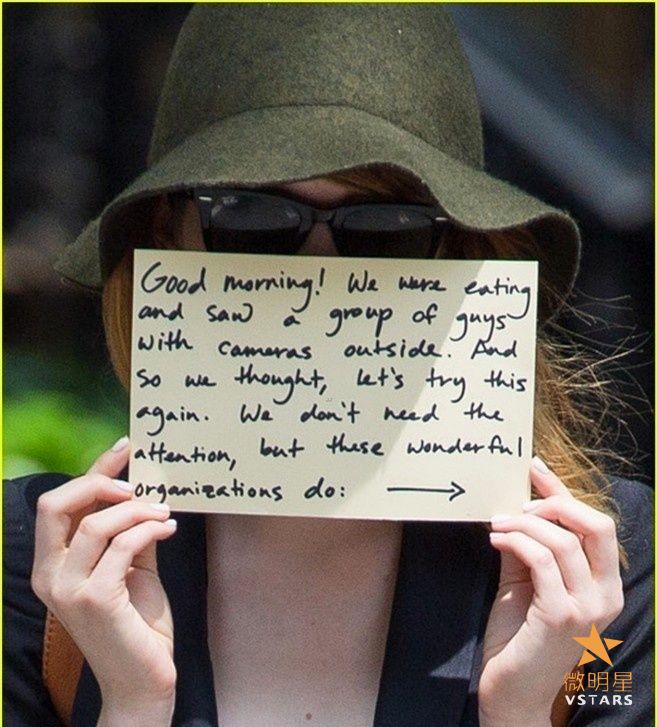 Good morning! We were eating
and saw a group of guys
with cameras outside. And
so we thought, let's try this
again. We don't need the
attention, but these wonderful
organizations do:
微明星
VSTARS